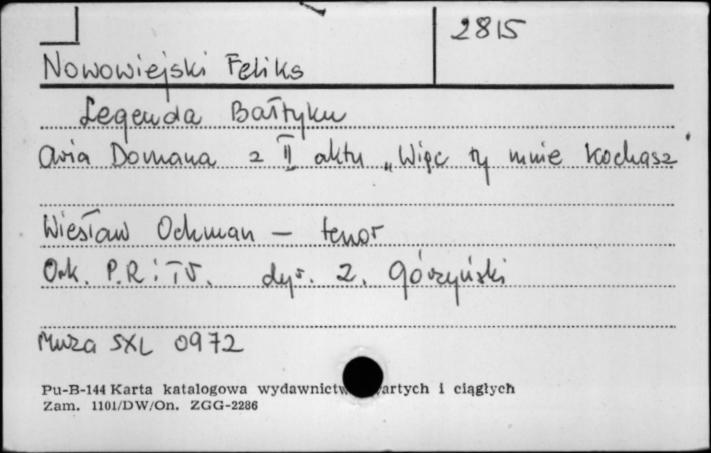 2815
Nowowiejski Feliks
Legenda Bałtyku
Aria Domana z II aktu „Więc ty mnie kochasz"
Wiesław Ochman – tenor
Ork. P.R i TV. dyr. Z. Górzyński
Muza SXL 0972
Pu-B-144 Karta katalogowa wydawnictw artych i ciągłych
Zam. 1101/DW/On. ZGG-2286